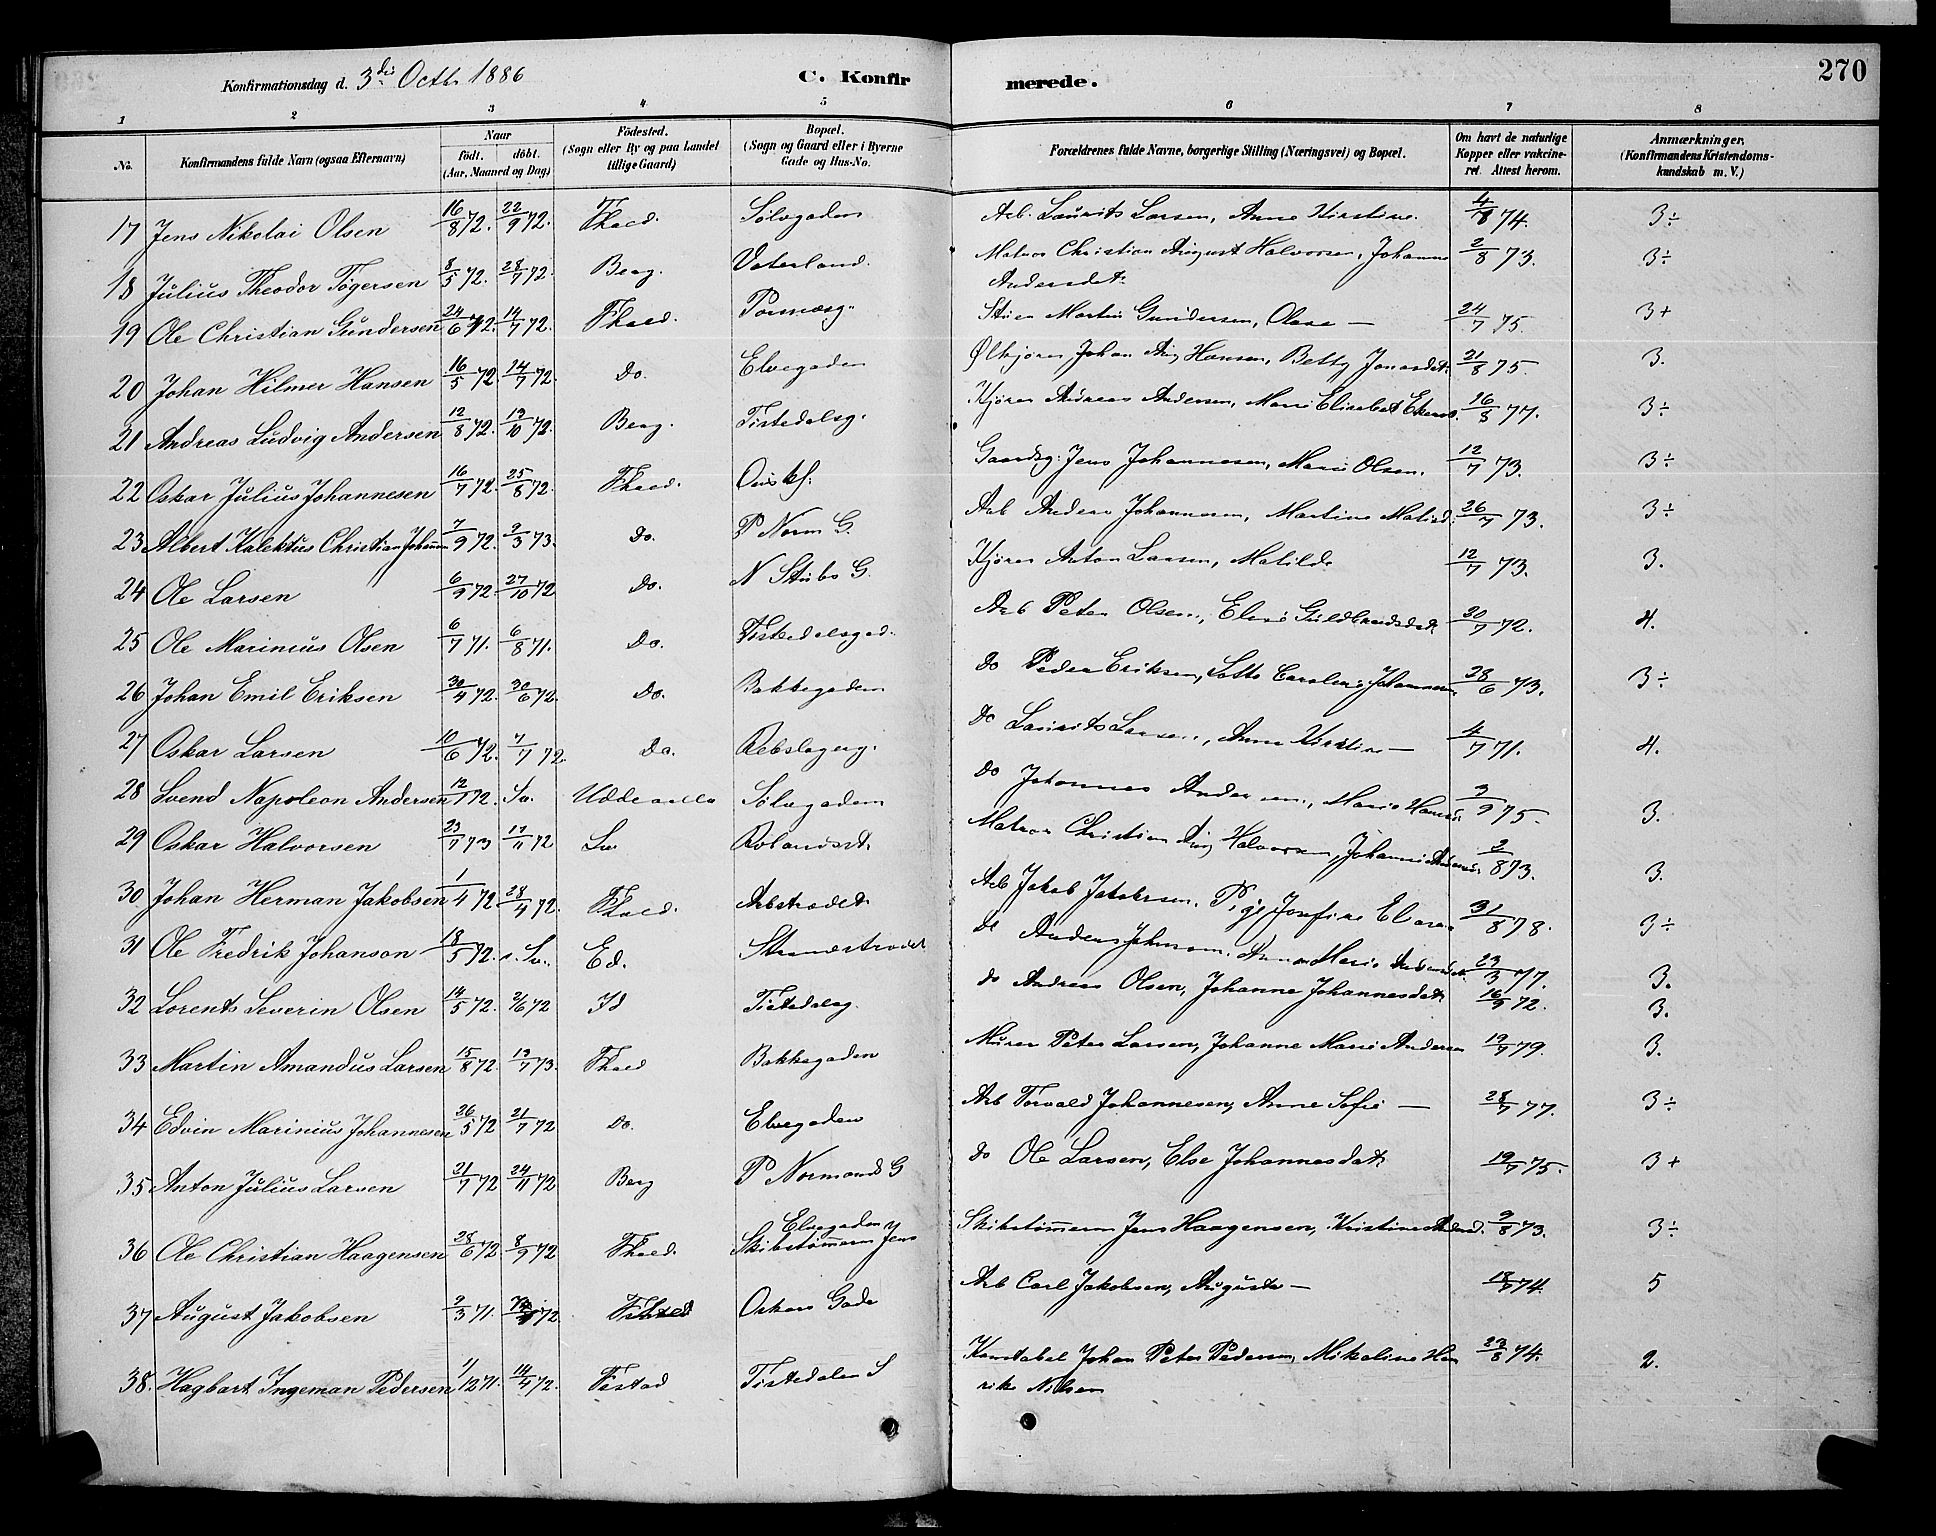 Konfirmationsdag d. 3die Octb. 1886 C. Konfirmerede. 270
1 2 3 4 5 6 7 8
No. Konfirmandens fulde Navn (ogsaa Efternavn) Naar født. døbt. (Aar, Maaned og Dag) Fødested. (Sogn eller By og paa Landet tillige Gaard) Bopæl. (Sogn og Gaard eller i Byerne Gade og Hus-No. Forældrenes fulde Navne, borgerlige Stilling (Næringsvei) og Bopæl. Om havt de naturlige Kopper eller vakcineret. Attest herom. Anmærkninger. (Konfirmandens Kristendomskundskab m. V.)
17 Jens Nikolai Olsen 16/8 72. 22/9 72. Fhald. Sølvgaden Arb. Laurits Larsen, Anne Kirstine. 4/8 74. 3÷
18 Julius Theodor Tøgersen 8/5 72. 28/7 72. Berg. Vaterland. Matros Christian August Halvorsen, Johanne Andersdat. 2/8 73. 3÷
19 Ole Christian Gundersen 24/6 72. 14/7 72. Fhald. Martin Gundersen, Olava — 24/7 75. 3+
20 Johan Hilmer Hansen 16/5 72. 14/7 72. Do. Elvegaden Ølkjører Johan Aug Hansen, Betty Jonasdat. 21/8 75. 3.
21 Andreas Ludvig Andersen 12/8 72. 13/10 72. Berg. Tistedalsg. Kjører Andreas Andersen, Marie Elisabet 16/8 77. 3÷
22 Oskar Julius Johannesen 16/7 72. 25/8 72. Fhald. Gaardsg. Jens Johannesen, Marie Olsen. 12/7 73. 3÷
23 Albert Kalektus Christian Johannes 7/9 72. 2/3 73. Do. P Norm G. Arb Anders Johannesen, Martine 26/7 73. 3÷
24 Ole Larsen 6/9 72. 27/10 72 Do. N Stubs G. Kjører Anton Larsen, Matilde 12/7 73. 3.
25 Ole Marinius Olsen 6/7 71. 6/8 71. Do. Tistedalsgad. Arb Peter Olsen, Elene Guldbrandsdat. 20/7 72. 4.
26 Johan Emil Eriksen 30/4 72. 30/6 72. Do. Bakkegaden Do Peder Eriksen, Lotte Caroline Johannesen 28/6 73. 3÷
27 Oskar Larsen 10/6 72. 7/7 72. Do. Rebslagerg. Do Laurits Larsen, Anne Kirstine — 4/7 71. 4.
28 Svend Napoleon Andersen 12/1 72. Sv. Uddevalla Sølvgaden Do Johannes Andersen, Marie 3/9 75. 3.
29 Oskar Halvorsen 23/7 73 17/11 72 Sv. Rolandsst. Matros Christian Aug Halvorsen, Johanne 2/8 73. 3.
30 Johan Herman Jakobsen 1/4 72 28/4 72. Fhald. Arbstrædet Arb Jakob Jakobsen. Pige Josefine 31/8 78. 3÷
31 Ole Fredrik Johanson 18/5 72. Sv. Ed. Strandstrædet do Anders Johnson, Anna Marie 23/3 77. 3.
32 Lorents Severin Olsen 14/5 72. 2/6 72 Id Tistedalsg. do Andreas Olsen, Johanne Johannesdat. 16/9 72. 3.
33 Martin Amandus Larsen 15/8 72. 13/7 73. Fhald Bakkegaden Murer Peter Larsen, Johanne Marie Andersen 19/7 79. 3.
34 Edvin Marinius Johannesen 26/5 72 21/7 72 Do. Elvegaden Arb Torvald Johannesen, Anne Sofie — 28/7 77. 3÷
35 Anton Julius Larsen 21/7 72 24/11 72 Berg P Normands G do Ole Larsen, Else Johannesdat. 19/7 75. 3+
36 Ole Christian Haagensen 28/6 72 8/9 72 Fhald. Elvegaden Skibstømmerm Jens Skibstømmerm Jens Haagensen, Kristine 2/8 73. 3÷
37 August Jakobsen 2/3 71. 72. Oskars Gade Arb Carl Jakobsen, Auguste — 18/7 74. 5
38. Hagbart Ingeman Pedersen 1/12 71. 14/4 72. Tistedalen S Konstabel Johan Peter Pedersen, Mikeline Henrike Nilsen 23/8 74. 2.